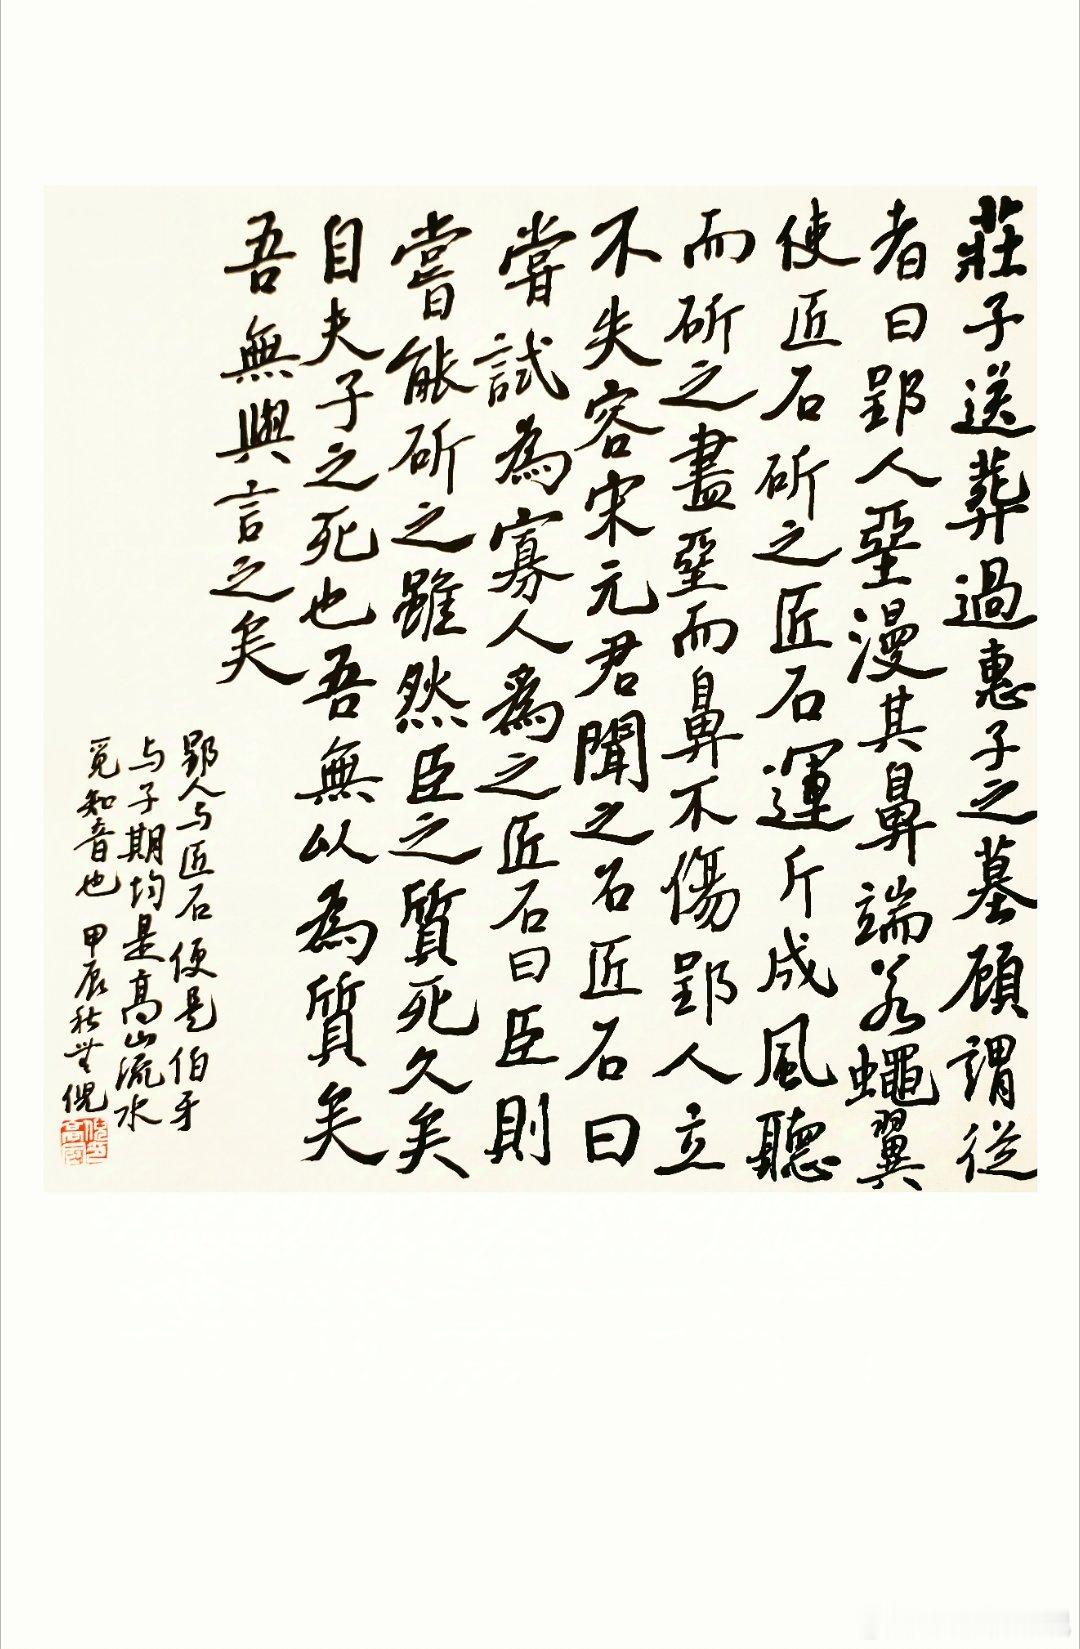 莊子送葬過惠子之墓顧謂從
者曰郢人堊漫其鼻端若蠅翼
使匠石斫之匠石運斤成風聽
而斫之盡堊而鼻不傷郢人立
不失容宋元君聞之召匠石曰
嘗試為寡人為之匠石曰臣則
嘗能斫之雖然臣之質死久矣
自夫子之死也吾無以為質矣
吾無與言之矣
郢人与匠石便是伯牙
与子期均是高山流水
觅知音也 甲辰秋 倪